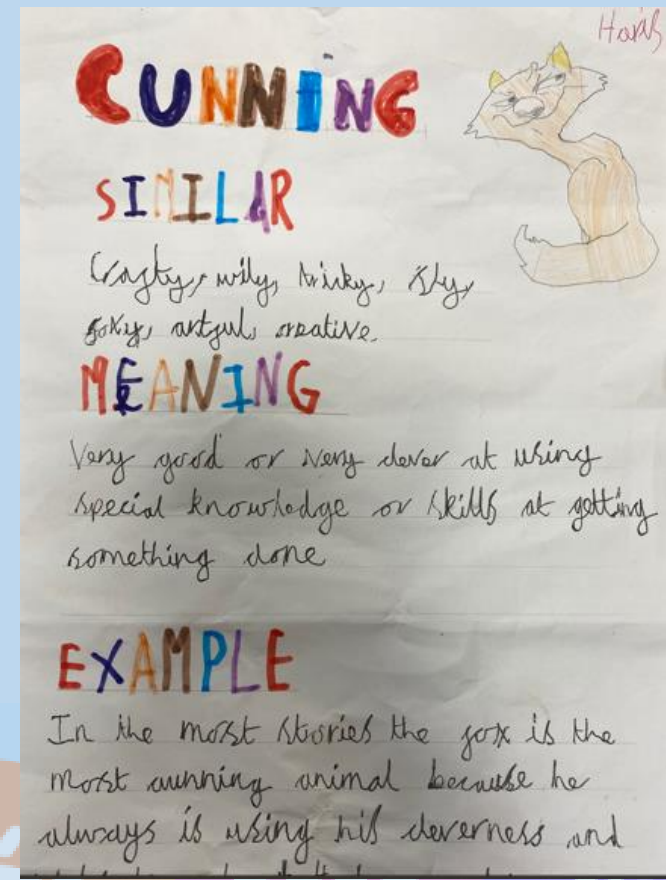 Haris
CUNNING
SIMILAR
Crafty, wily, tricky, sly,
foxy, artful, creative.
MEANING
Very good or very clever at using
special knowledge or skills at getting
something done
EXAMPLE
In the most stories the fox is the
most cunning animal because he
always is using his cleverness and